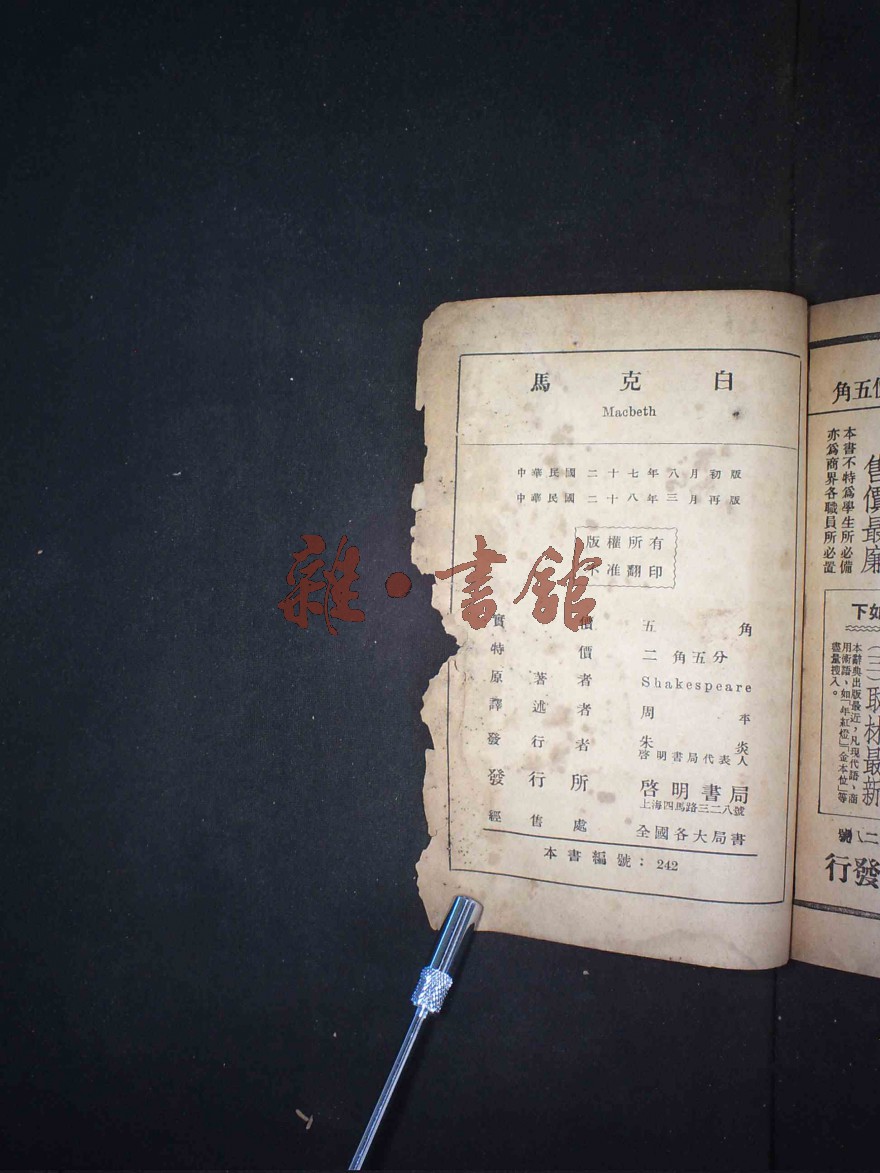 馬克白
Macbeth
中華民國二十七年八月初版
中華民國二十八年三月再版
版權所有
不准翻印
實價 五角
特價 二角五分
原著者 Shakespeare
譯述者 周平
發行者 朱炎
啓明書局代表人
發行所 啓明書局
上海四馬路三二八號
經售處 全國各大局書
本書編號：242
雜·書館
價五角
本書不特為學生所必備
亦為商界各職員所必置
售價最廉
如下
(三)取材最新
本辭典出版最近，凡現代語、商
用術語、如「年紅燈」「金本位」等
盡量搜入。
發行